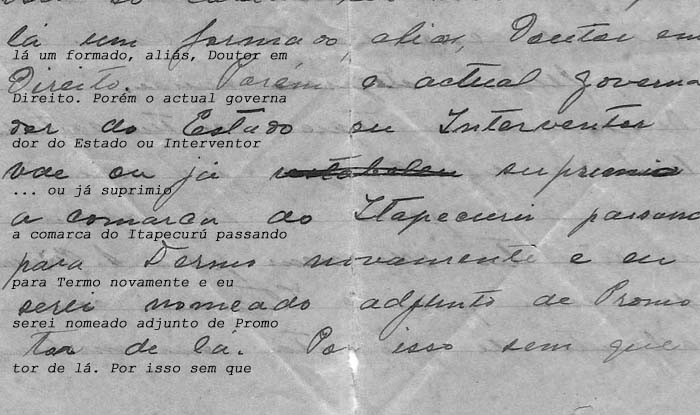 lá um formado, aliás, Doutor em
lá um formado, aliás, Doutor em
Direito. Porém o actual governa
Direito. Porém o actual governa
dor do Estado ou Interventor
dor do Estado ou Interventor
vae ou já suprimio
... ou já suprimio
a comarca do Itapecurú passando
a comarca do Itapecurú passando
para Termo novamente e eu
para Termo novamente e eu
serei nomeado adjunto de Promo
serei nomeado adjunto de Promo
tor de lá. Por isso sem que
tor de lá. Por isso sem que